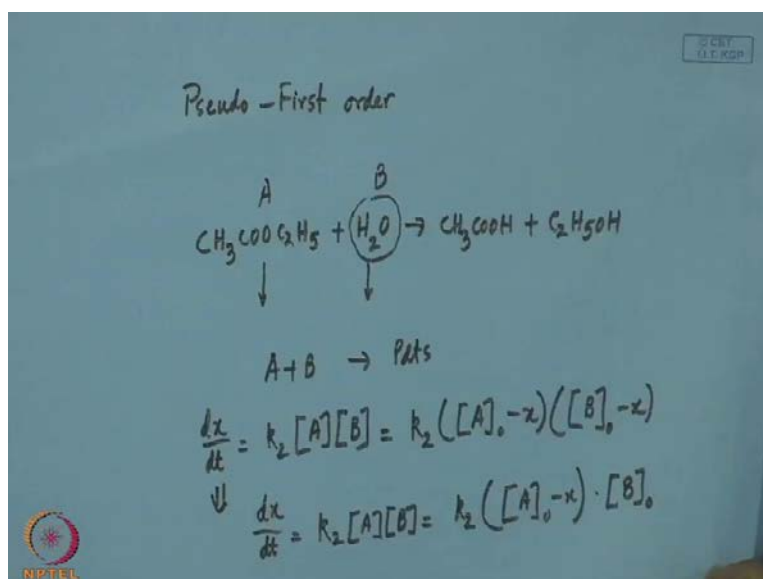 © CET
I.I.T. KGP
Pseudo-First order
A B
CH₃COOC₂H₅ + H₂O → CH₃COOH + C₂H₅OH
↓ ↓
A+B → Pdts
dx/dt = k₂[A][B] = k₂([A]₀-x)([B]₀-x)
⇓ dx/dt = k₂[A][B] = k₂([A]₀-x)·[B]₀
NPTEL